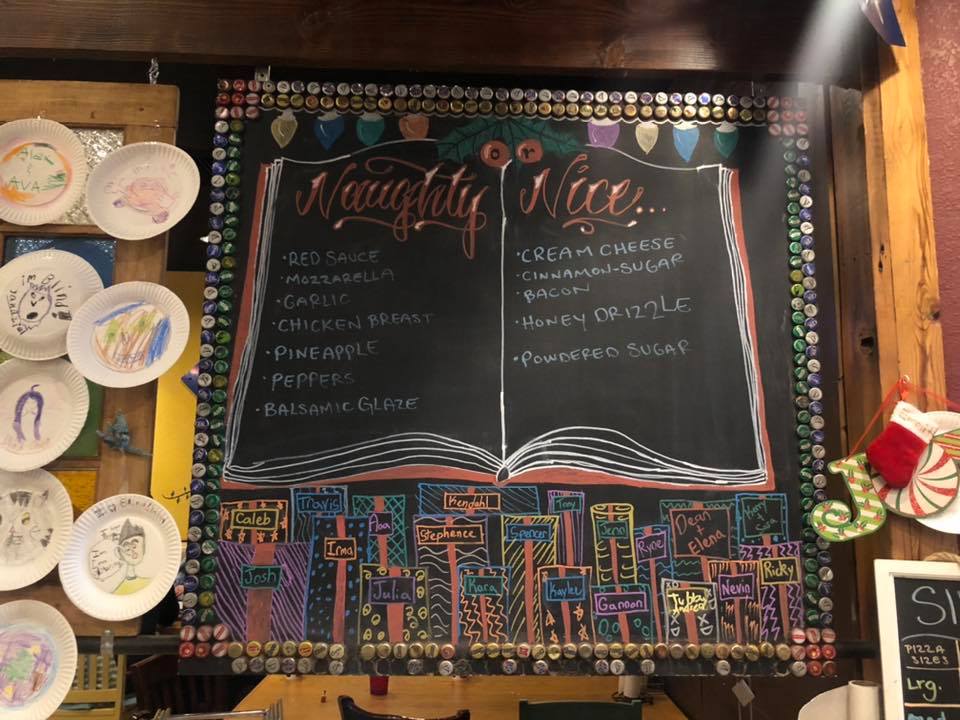 or
Naughty
Nice...
• RED SAUCE
• MOZZARELLA
• GARLIC
• CHICKEN BREAST
• PINEAPPLE
• PEPPERS
• BALSAMIC GLAZE
• CREAM CHEESE
• CINNAMON-SUGAR
• BACON
• HONEY DRIZZLE
• POWDERED SUGAR
Caleb
Travis
Kendahl
Tony
Josh
Irma
Stephenee
Spencer
Jenn
Ryne
Dean
Elena
Julia
Kara
Kaylee
Gannon
Nevin
Ricky
AVA
PIZZA
SIZES
Lrg.